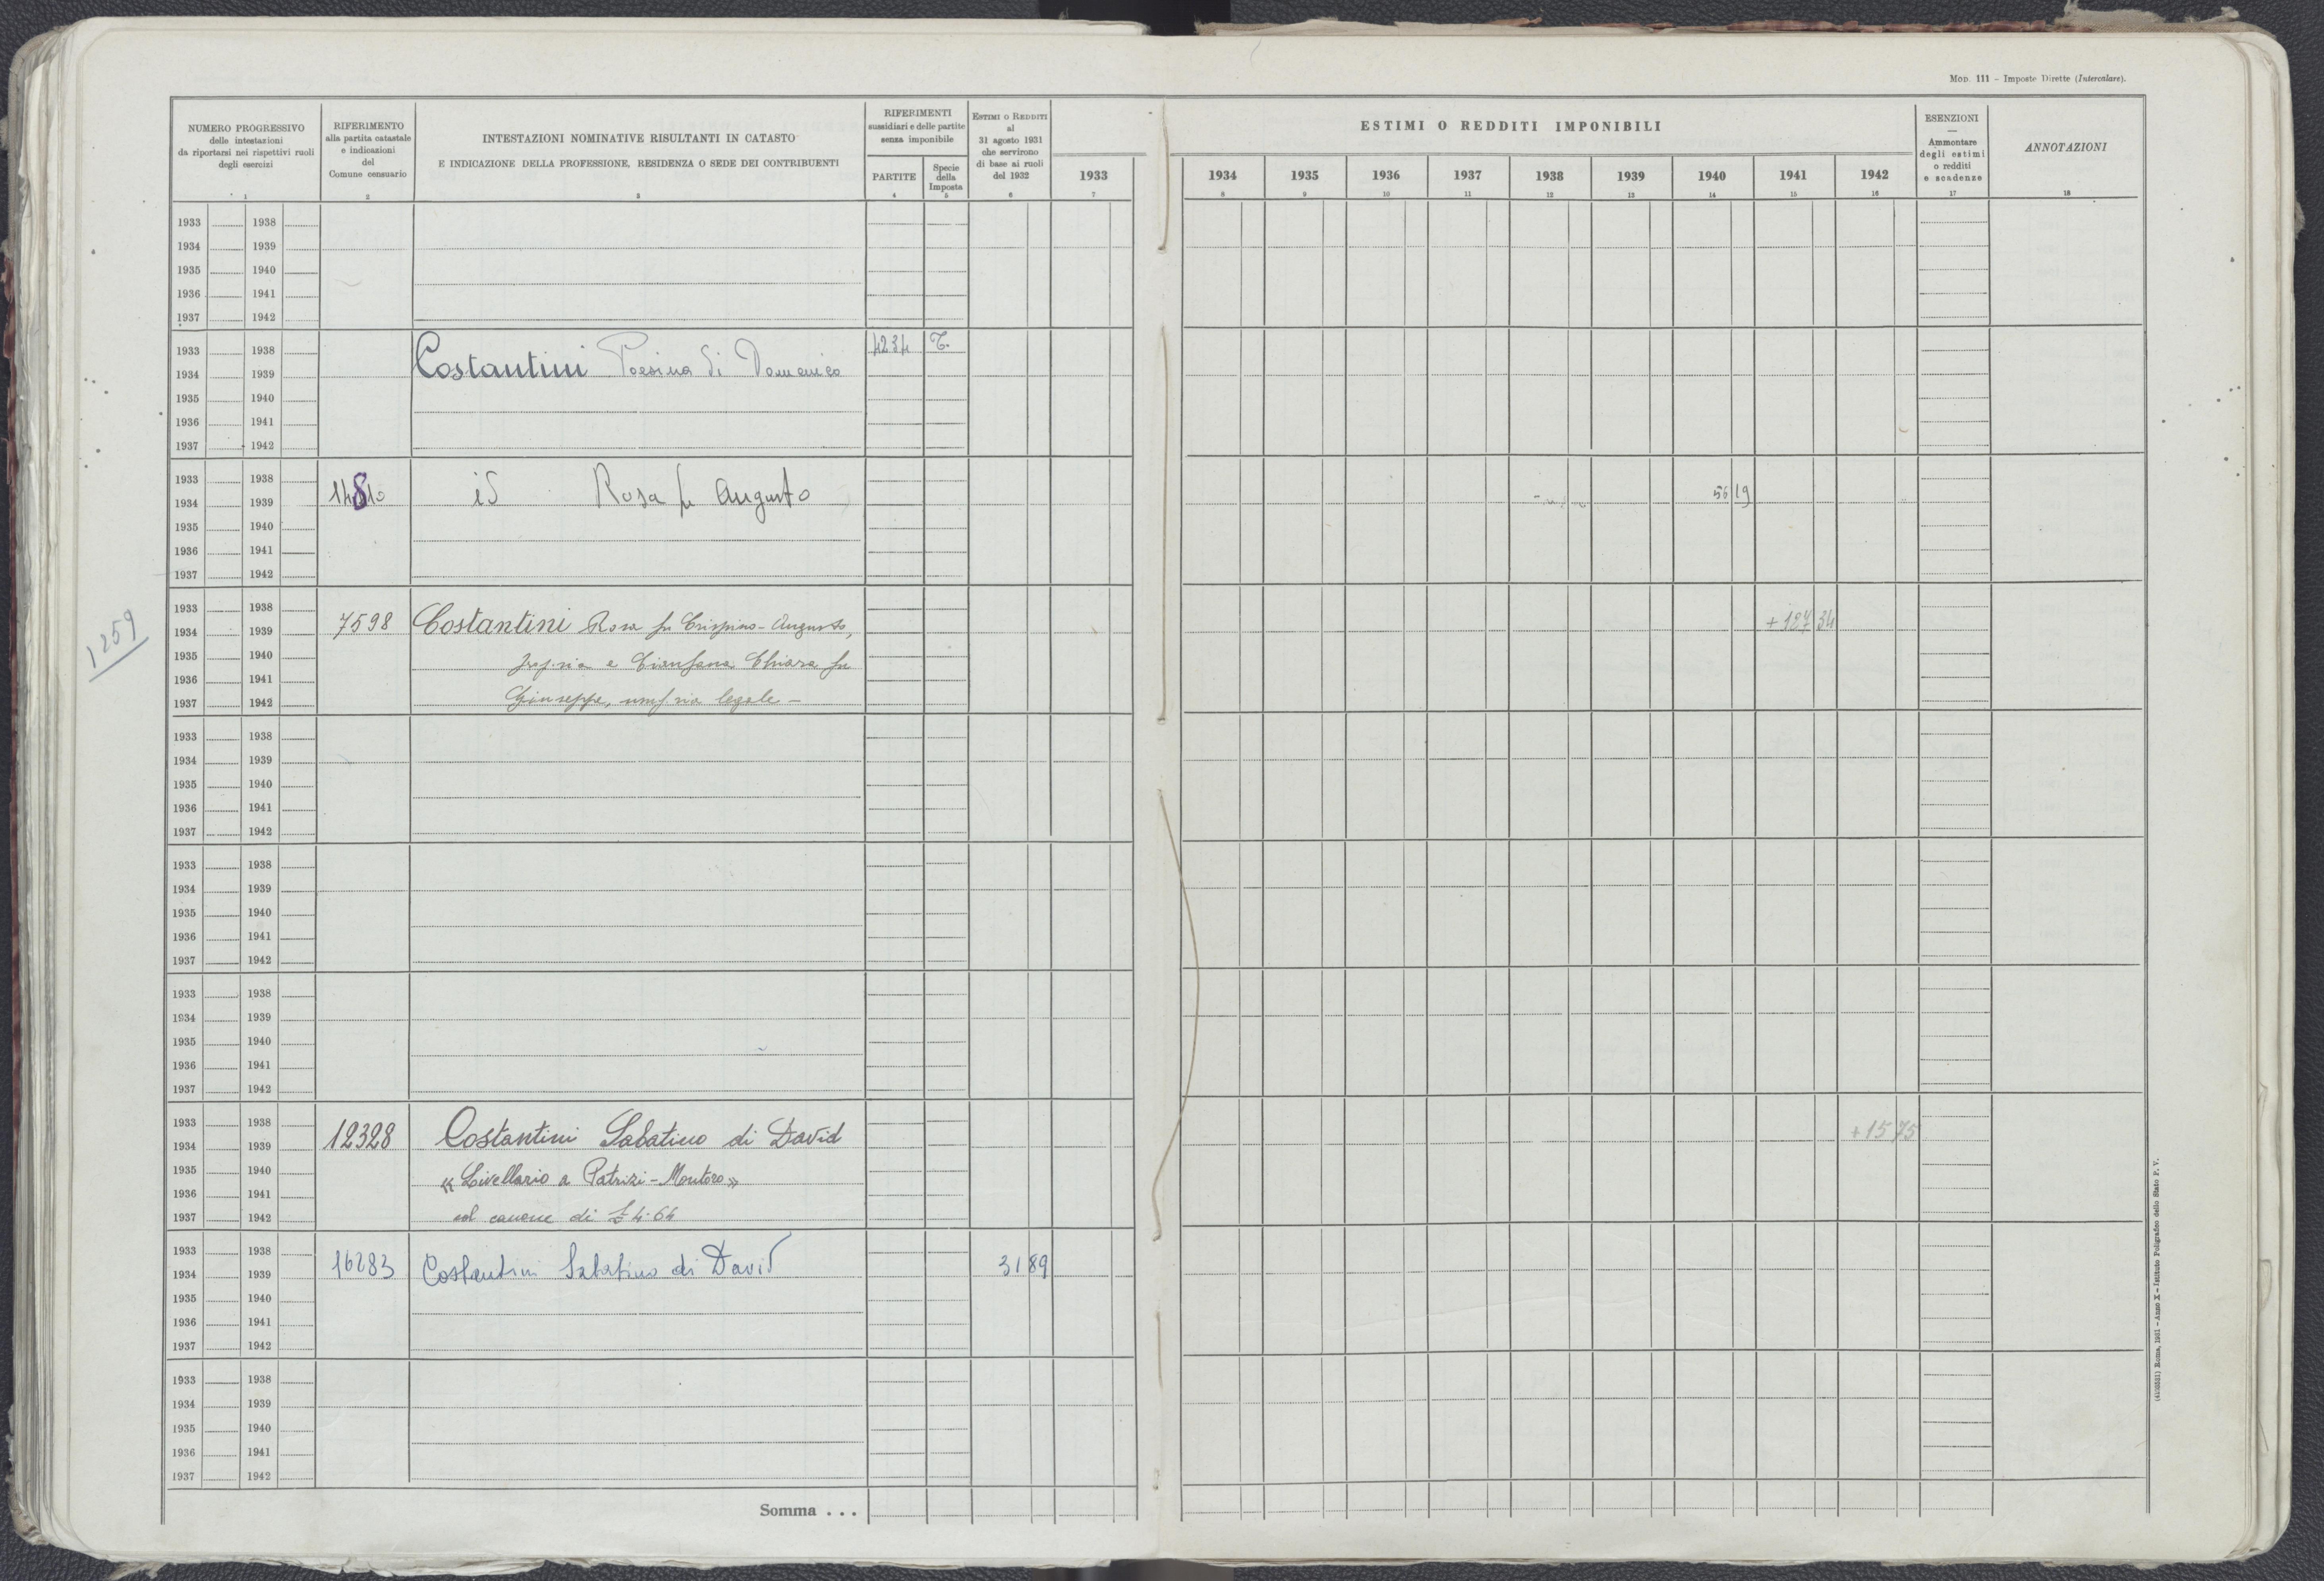 Mod. 111 – Imposte Dirette (Intercalare).
NUMERO PROGRESSIVO
delle intestazioni
da riportarsi nei rispettivi ruoli
degli esercizi
1
RIFERIMENTO
alla partita catastale
e indicazioni
del
Comune censuario
2
INTESTAZIONI NOMINATIVE RISULTANTI IN CATASTO
E INDICAZIONE DELLA PROFESSIONE, RESIDENZA O SEDE DEI CONTRIBUENTI
3
RIFERIMENTI
sussidiari e delle partite
senza imponibile
PARTITE
4
Specie
della
Imposta
5
ESTIMI O REDDITI
al
31 agosto 1931
che servirono
di base ai ruoli
del 1932
6
1933
7
ESTIMI O REDDITI IMPONIBILI
1934 1935 1936 1937 1938 1939 1940 1941 1942
8 9 10 11 12 13 14 15 16
ESENZIONI
—
Ammontare
degli estimi
o redditi
e scadenze
17
ANNOTAZIONI
18
1933 1938
1934 1939
1935 1940
1936 1941
1937 1942
1933 1938 4234 T.
1934 1939 Costantini di Domenico
1935 1940
1936 1941
1937 1942
1933 1938
1934 1939 id Rosa fu Augusto 56 19
1935 1940
1936 1941
1937 1942
1259
1933 1938
1934 1939 7598 Costantini Rosa fu Crispino-Augusto, + 127 34
1935 1940 e Cianfana Chiara fu
1936 1941
1937 1942 Giuseppe, legale –
1933 1938
1934 1939
1935 1940
1936 1941
1937 1942
1933 1938
1934 1939
1935 1940
1936 1941
1937 1942
1933 1938
1934 1939
1935 1940
1936 1941
1937 1942
1933 1938
1934 1939 12328 Costantini Sabatino di David + 15 75
1935 1940
1936 1941 « Livellario a Patrizi – Montoro »
1937 1942 col canone di £ 4.64
1933 1938
1934 1939 16283 Costantini Sabatino di David 31 89
1935 1940
1936 1941
1937 1942
1933 1938
1934 1939
1935 1940
1936 1941
1937 1942
Somma . . .
Roma, 1931 – Anno X – Istituto Poligrafico dello Stato P. V.